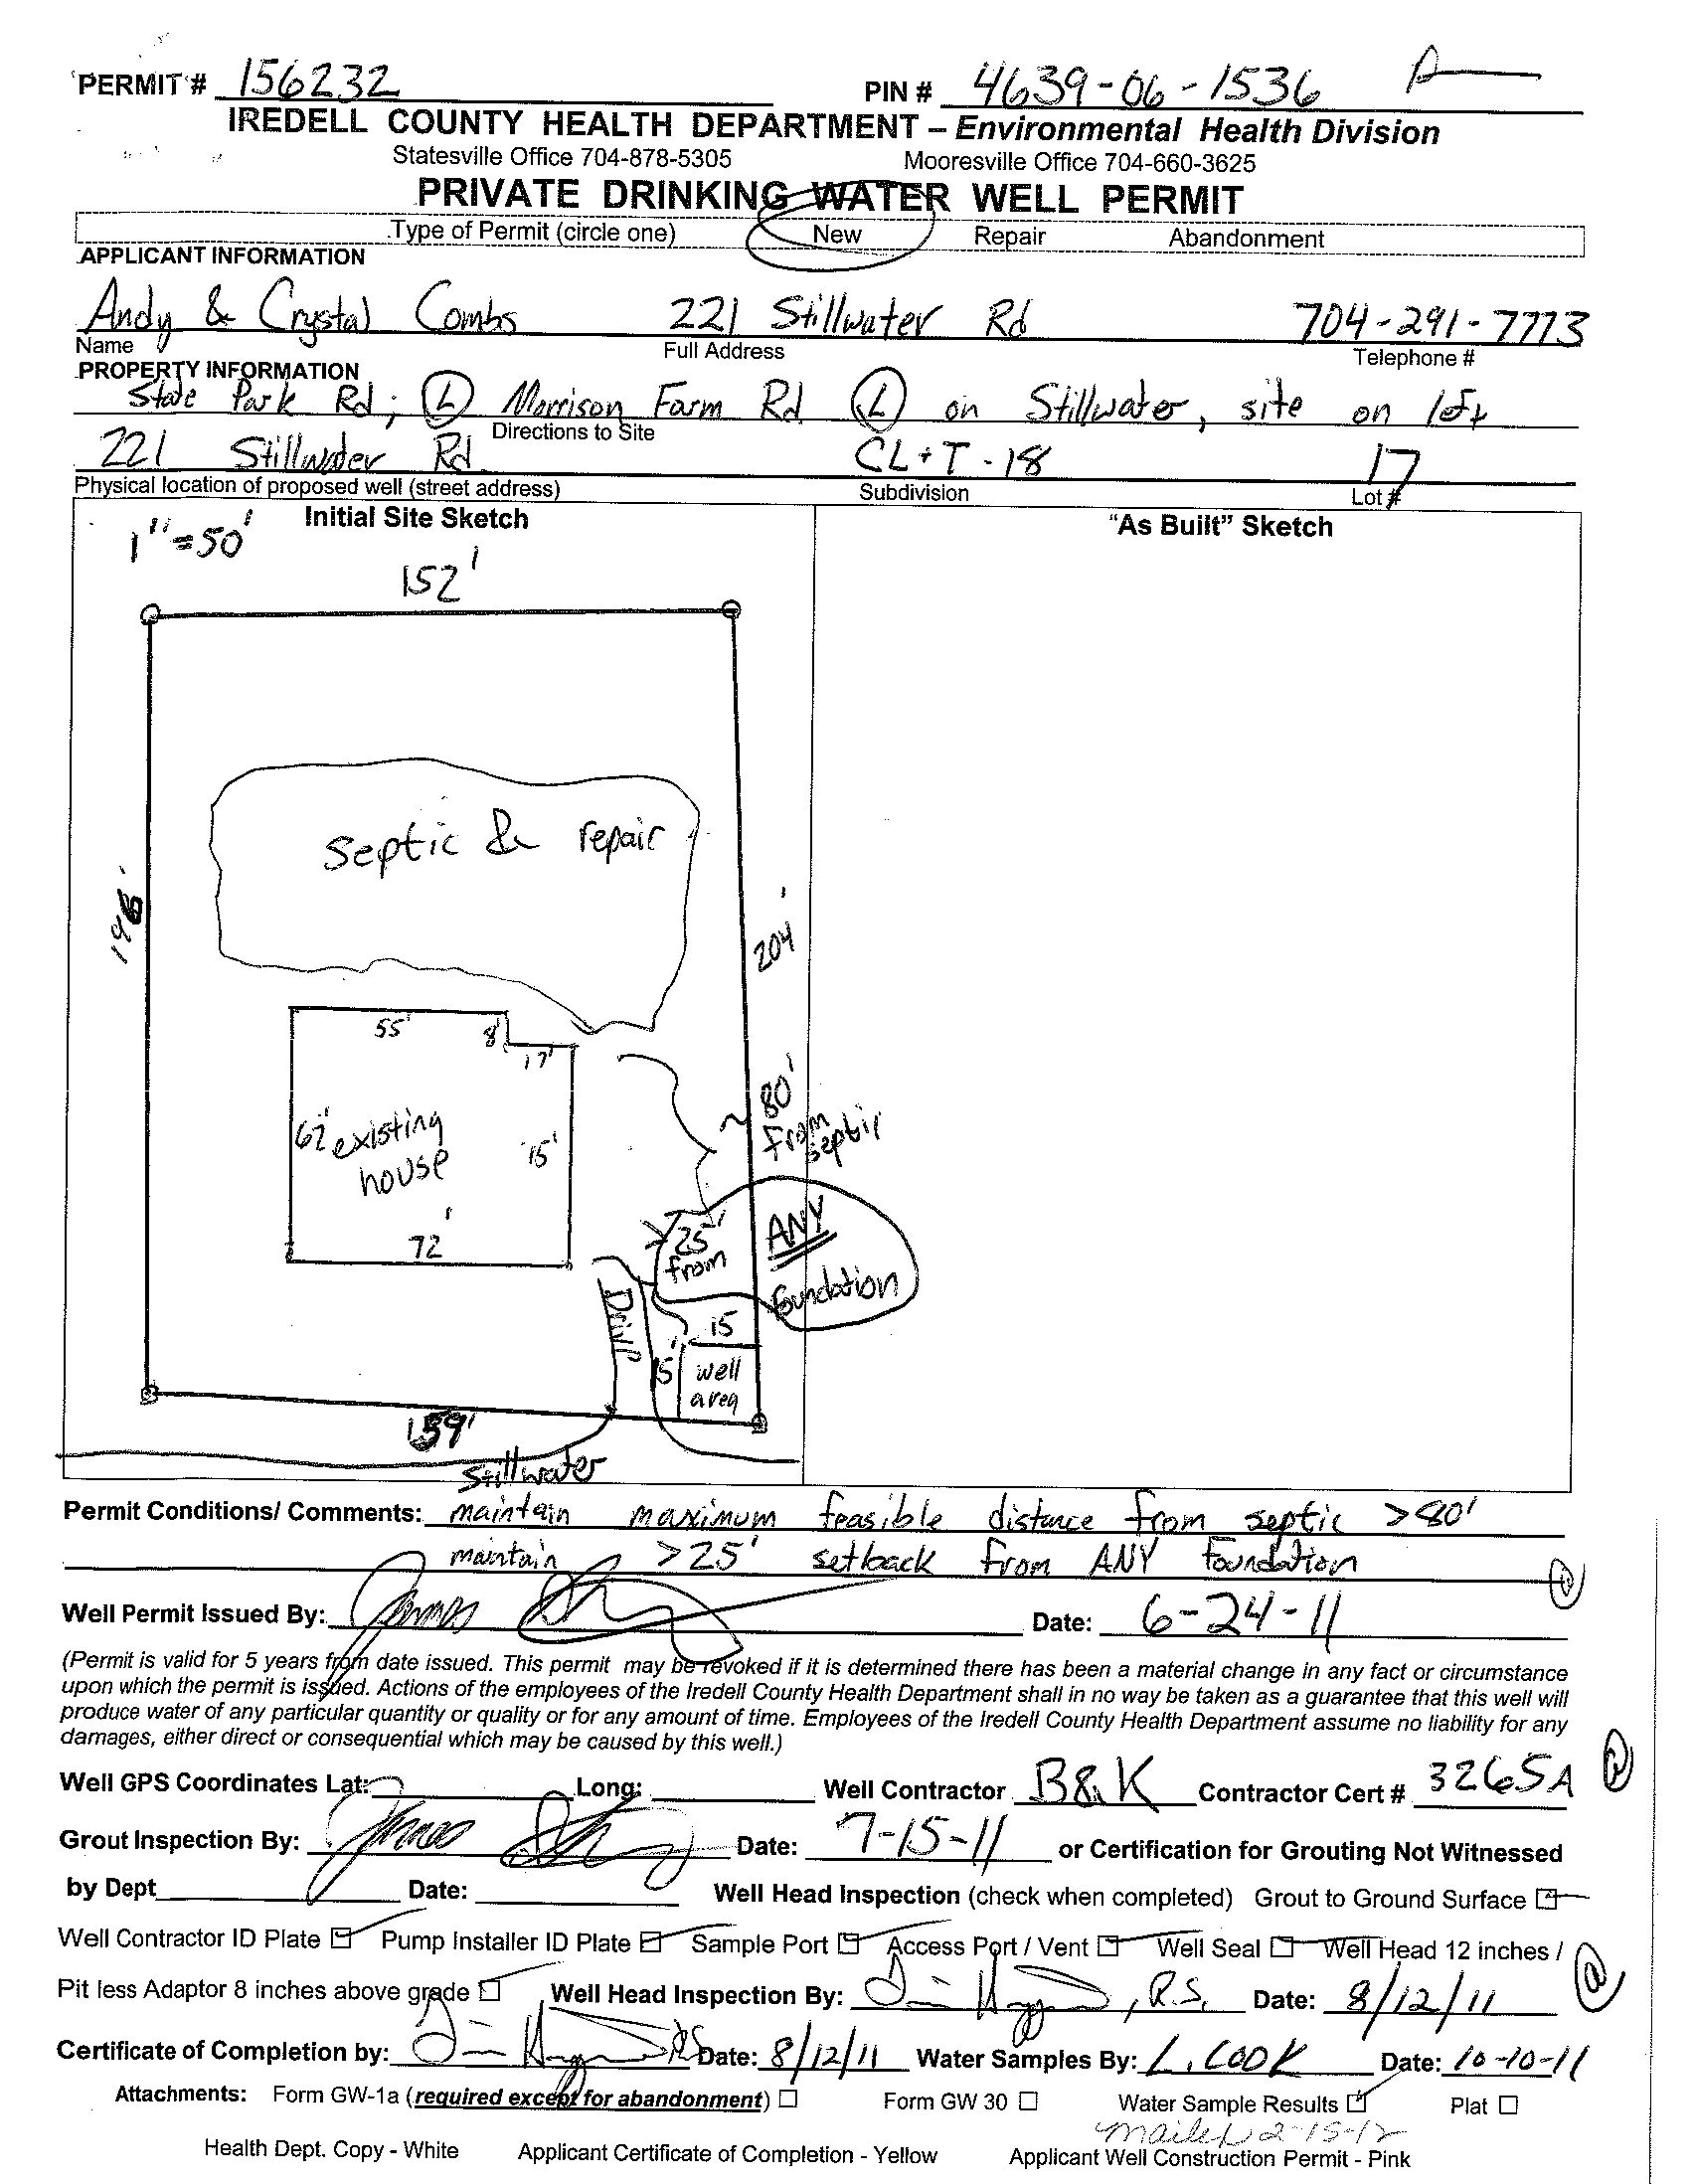 PERMIT # 156232 PIN # 4639-06-1536 A
IREDELL COUNTY HEALTH DEPARTMENT – Environmental Health Division
Statesville Office 704-878-5305 Mooresville Office 704-660-3625
PRIVATE DRINKING WATER WELL PERMIT
Type of Permit (circle one) New Repair Abandonment
APPLICANT INFORMATION
Andy & Crystal Combs 221 Stillwater Rd 704-291-7773
Name Full Address Telephone #
PROPERTY INFORMATION
State Park Rd; L Morrison Farm Rd L on Stillwater, site on left
Directions to Site
221 Stillwater Rd CL+T-18 17
Physical location of proposed well (street address) Subdivision Lot #
Initial Site Sketch "As Built" Sketch
1"=50'
152'
septic & repair
204'
55' 8'
17'
62' existing
house
15'
72'
~80'
from
septic
25'
from
ANY
foundation
Drive
15
15'
well
area
159'
Stillwater
Permit Conditions/ Comments: maintain maximum feasible distance from septic >80'
maintain >25' setback from ANY foundation
Well Permit Issued By: James Date: 6-24-11
(Permit is valid for 5 years from date issued. This permit may be revoked if it is determined there has been a material change in any fact or circumstance
upon which the permit is issued. Actions of the employees of the Iredell County Health Department shall in no way be taken as a guarantee that this well will
produce water of any particular quantity or quality or for any amount of time. Employees of the Iredell County Health Department assume no liability for any
damages, either direct or consequential which may be caused by this well.)
Well GPS Coordinates Lat: Long: Well Contractor B&K Contractor Cert # 3265A
Grout Inspection By: James Date: 7-15-11 or Certification for Grouting Not Witnessed
by Dept Date: Well Head Inspection (check when completed) Grout to Ground Surface
Well Contractor ID Plate Pump Installer ID Plate Sample Port Access Port / Vent Well Seal Well Head 12 inches /
Pit less Adaptor 8 inches above grade Well Head Inspection By: , R.S. Date: 8/12/11
Certificate of Completion by: RS Date: 8/12/11 Water Samples By: L. COOK Date: 10-10-11
Attachments: Form GW-1a (required except for abandonment) Form GW 30 Water Sample Results Plat
mailed 2-15-12
Health Dept. Copy - White Applicant Certificate of Completion - Yellow Applicant Well Construction Permit - Pink